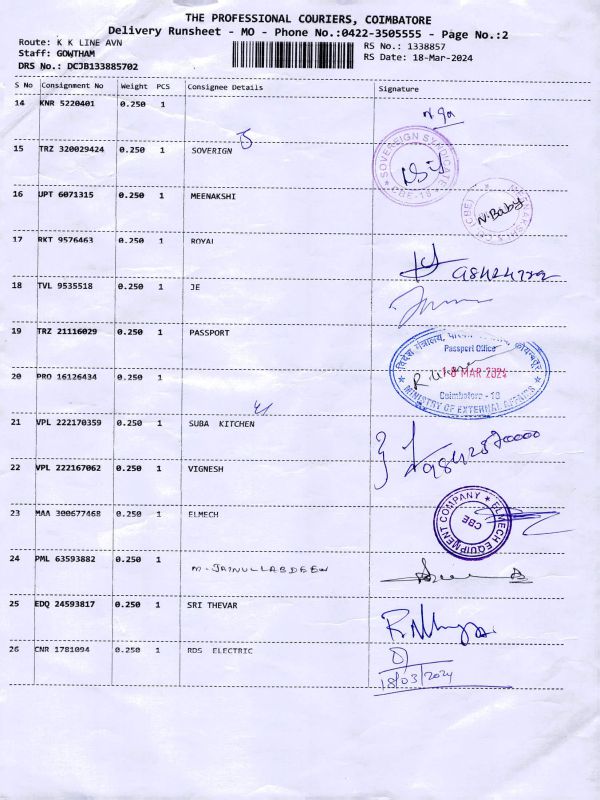 THE PROFESSIONAL COURIERS, COIMBATORE
Delivery Runsheet - MO - Phone No.:0422-3505555 - Page No.:2
Route: K K LINE AVN
Staff: GOWTHAM
DRS No.: DCJB133885702
RS No.: 1338857
RS Date: 18-Mar-2024
S No Consignment No Weight PCS Consignee Details Signature
14 KNR 5220401 0.250 1
15 TRZ 320029424 0.250 1 SOVERIGN
SOVEREIGN SYNDICATE
CBE-18
16 UPT 6071315 0.250 1 MEENAKSHI
N. Baby
(CBE)
17 RKT 9576463 0.250 1 ROYAL
18 TVL 9535518 0.250 1 JE
19 TRZ 21116029 0.250 1 PASSPORT
Passport Office
18 MAR 2024
Coimbatore - 18
MINISTRY OF EXTERNAL AFFAIRS
20 PRO 16126434 0.250 1
21 VPL 222170359 0.250 1 SUBA KITCHEN
22 VPL 222167062 0.250 1 VIGNESH
23 MAA 300677468 0.250 1 ELMECH
ELMECH EQUIPMENT COMPANY
CBE
24 PML 63593882 0.250 1 M. JAINULLABDEEN
25 EDQ 24593817 0.250 1 SRI THEVAR
26 CNR 1781094 0.250 1 RDS ELECTRIC
18/03/2024